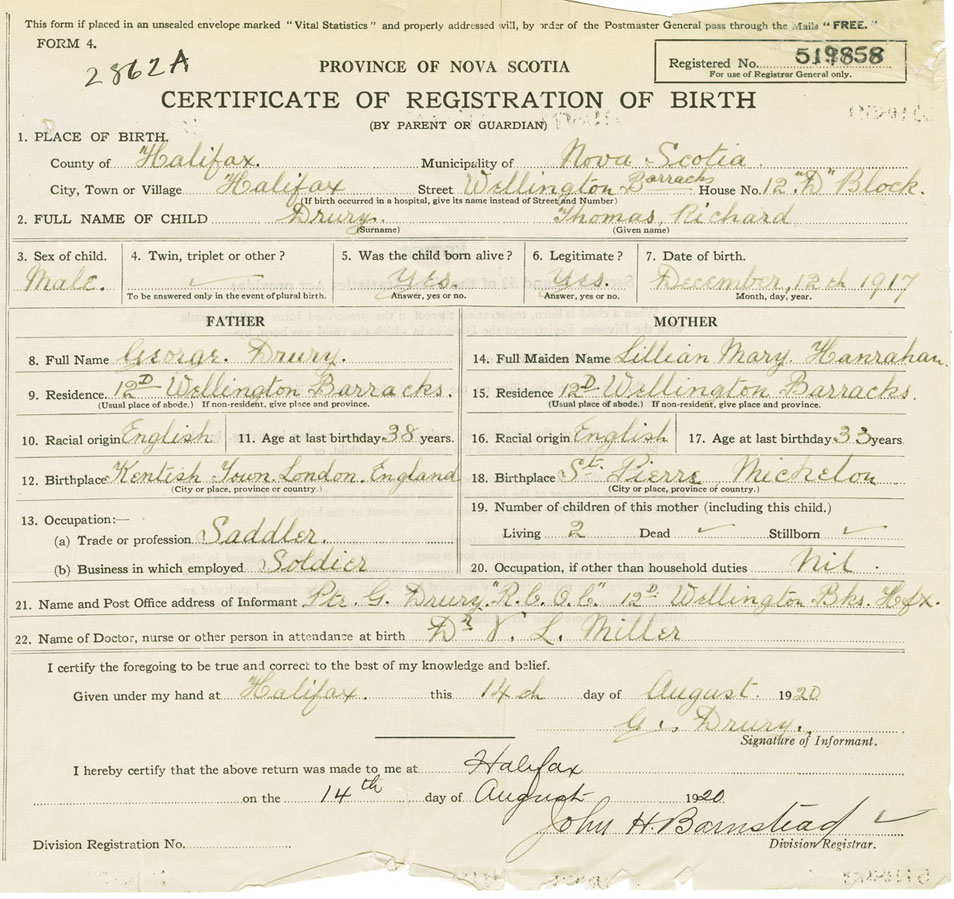 This form if placed in an unsealed envelope marked "Vital Statistics" and properly addressed will, by order of the Postmaster General pass through the Mails "FREE."
FORM 4.
2862A
Registered No. 519858
For use of Registrar General only.
PROVINCE OF NOVA SCOTIA
CERTIFICATE OF REGISTRATION OF BIRTH
(BY PARENT OR GUARDIAN)
1. PLACE OF BIRTH.
County of Halifax. Municipality of Nova Scotia.
City, Town or Village Halifax Street Wellington Barracks House No. 12 "D" Block.
(If birth occurred in a hospital, give its name instead of Street and Number)
2. FULL NAME OF CHILD Drury. Thomas Richard
(Surname) (Given name)
3. Sex of child. 4. Twin, triplet or other? 5. Was the child born alive? 6. Legitimate? 7. Date of birth.
Male. ✓ Yes. Yes. December, 12th 1917
To be answered only in the event of plural birth. Answer, yes or no. Answer, yes or no. Month, day, year.
FATHER MOTHER
8. Full Name George. Drury. 14. Full Maiden Name Lillian Mary Hanrahan.
9. Residence. 12D Wellington Barracks. 15. Residence 12D Wellington Barracks.
(Usual place of abode.) If non-resident, give place and province. (Usual place of abode.) If non-resident, give place and province.
10. Racial origin English 11. Age at last birthday 38 years. 16. Racial origin English 17. Age at last birthday 33 years.
12. Birthplace Kentish Town. London. England 18. Birthplace St. Pierre Michelon
(City or place, province or country.) (City or place, province or country.)
13. Occupation:— 19. Number of children of this mother (including this child.)
(a) Trade or profession Saddler. Living 2 Dead ✓ Stillborn ✓
(b) Business in which employed Soldier 20. Occupation, if other than household duties Nil.
21. Name and Post Office address of Informant Pte. G. Drury. "R.C.O.C." 12D Wellington Bks. Hfx.
22. Name of Doctor, nurse or other person in attendance at birth Dr V. L. Miller
I certify the foregoing to be true and correct to the best of my knowledge and belief.
Given under my hand at Halifax. this 14th day of August. 1920
G. Drury.
Signature of Informant.
I hereby certify that the above return was made to me at Halifax
on the 14th day of August 1920
John H. Barnstead ✓
Division Registration No. Division Registrar.